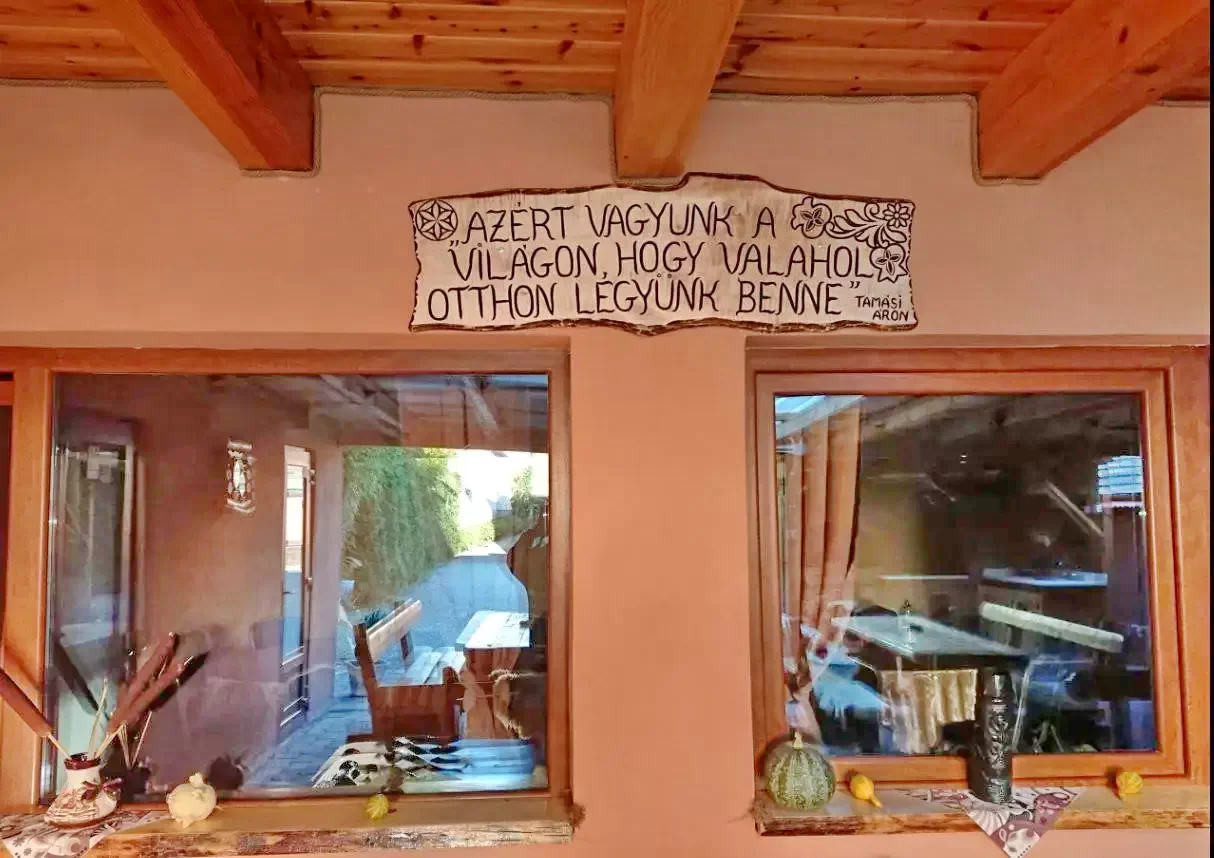 „AZÉRT VAGYUNK A
VILÁGON, HOGY VALAHOL
OTTHON LEGYÜNK BENNE”
TAMÁSI
ÁRON